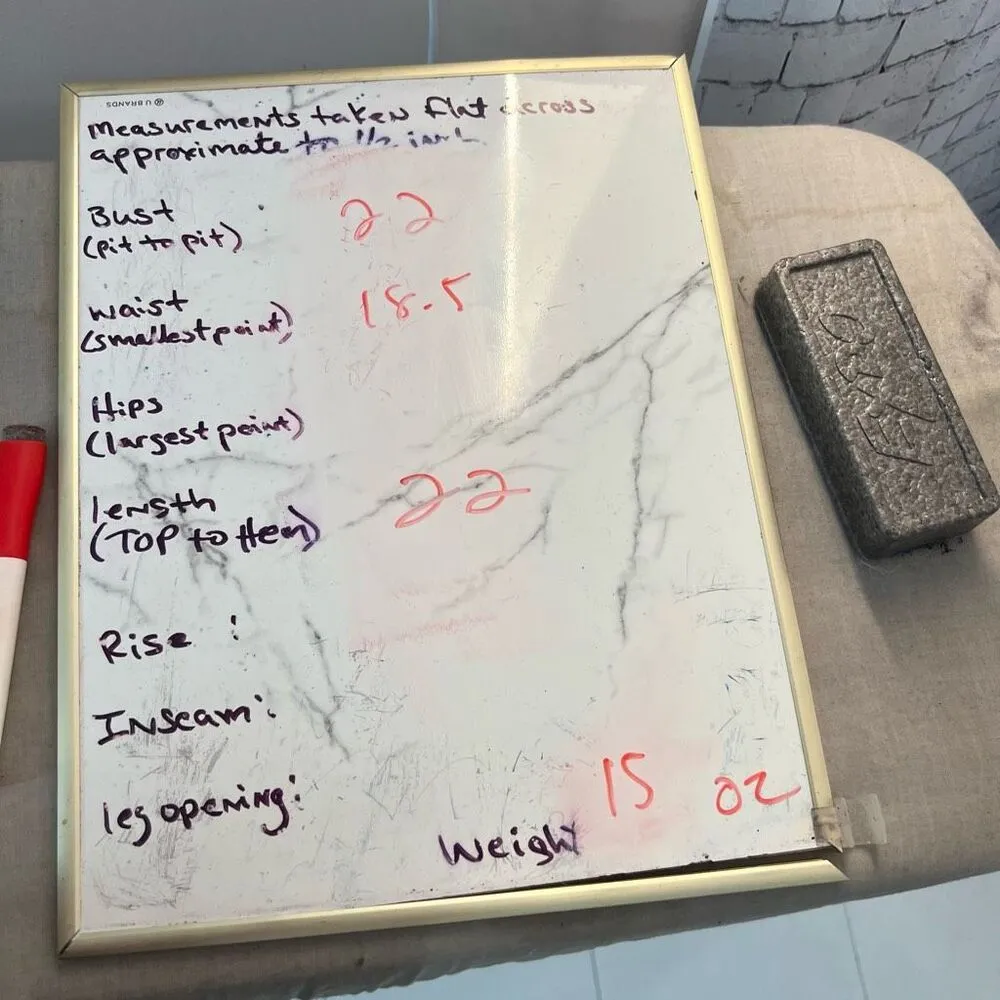 U BRANDS
Measurements taken flat across
approximate to 1/2 inch
Bust : 22
(pit to pit)
waist 18.5
(smallest point)
Hips
(largest point)
length 22
(TOP to Hem)
Rise :
Inseam:
leg opening:
15 oz
Weight